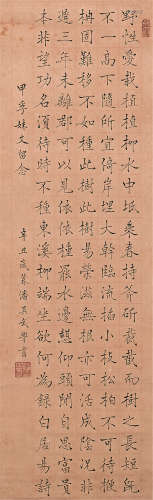 野性愛栽植植柳水中坻乘春持斧斤裁截而樹之長短既
不一高下隨所宜倚岸埋大幹臨流插小枝松柏不可待楩
楠固難移不如種此樹此樹易榮滋無根亦可活成陰況非
遲三年未離郡可以見依依種罷水邊憩仰頭閒自思富貴
本非望功名須待時不種東溪柳端坐欲何為錄白居易詩
甲孚妹丈留念
辛丑歲暮潘其學書